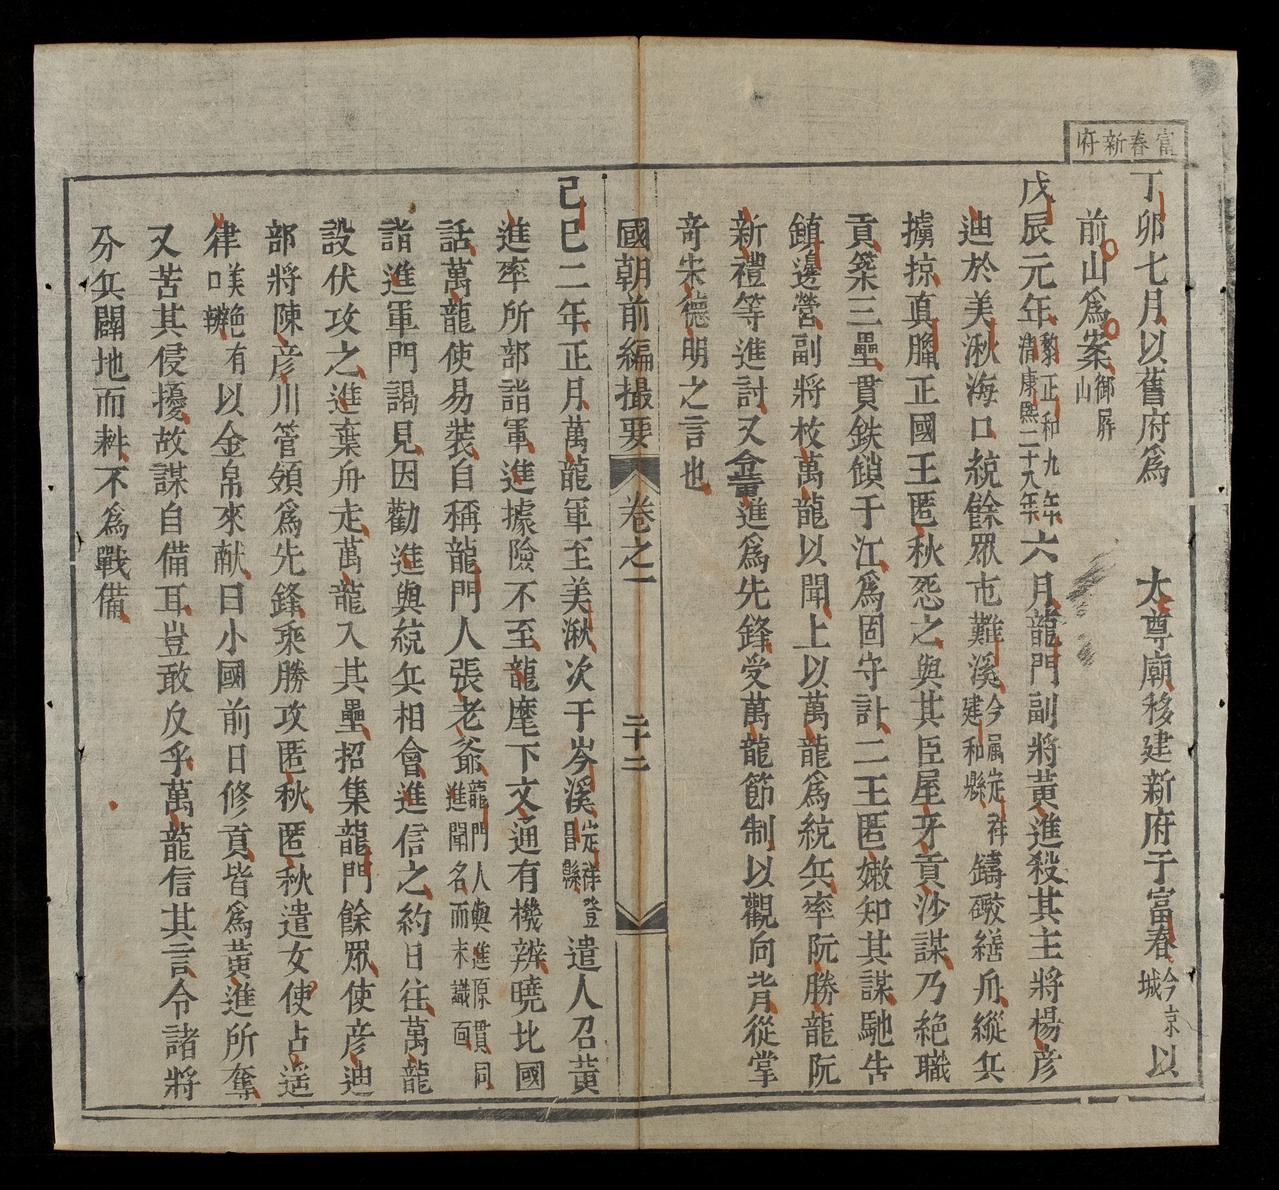 富春新府
丁卯七月以舊府爲　太尊廟移建新府于富春今京城以
前山爲案御屏山
戊辰元年黎正和九年清康熙二十八年六月龍門副將黃進殺其主將楊彦
迪於美湫海口統餘眾屯難溪今属定祥建和縣鑄礮繕舟縱兵
擄掠真臘正國王匿秋怨之與其臣屋牙貢沙謀乃絶職
貢築三壘貫鉄鎖于江爲固守計二王匿嫩知其謀馳告
鎮邊營副將枚萬龍以聞上以萬龍爲統兵率阮勝龍阮
新禮等進討又令黃進爲先鋒受萬龍節制以觀向背從掌
奇宋德明之言也
國朝前編撮要　卷之一　二十二
己巳二年正月萬龍軍至美湫次于岑溪定祥登昌縣遣人召黃
進率所部詣軍進據險不至龍麾下文通有機辨曉北國
話萬龍使易裝自稱龍門人張老爺龍門人與進原貫同進聞名而未識面
詣進軍門謁見因勸進與統兵相會進信之約日往萬龍
設伏攻之進棄舟走萬龍入其壘招集龍門餘眾使彦迪
部將陳彦川管領爲先鋒乘勝攻匿秋匿秋遣女使占遥
律嘆艳有口辨以金帛來献曰小國前日修貢皆爲黃進所奪
又苦其侵擾故謀自備耳豈敢反乎萬龍信其言令諸將
分兵闢地而耕不爲戰備